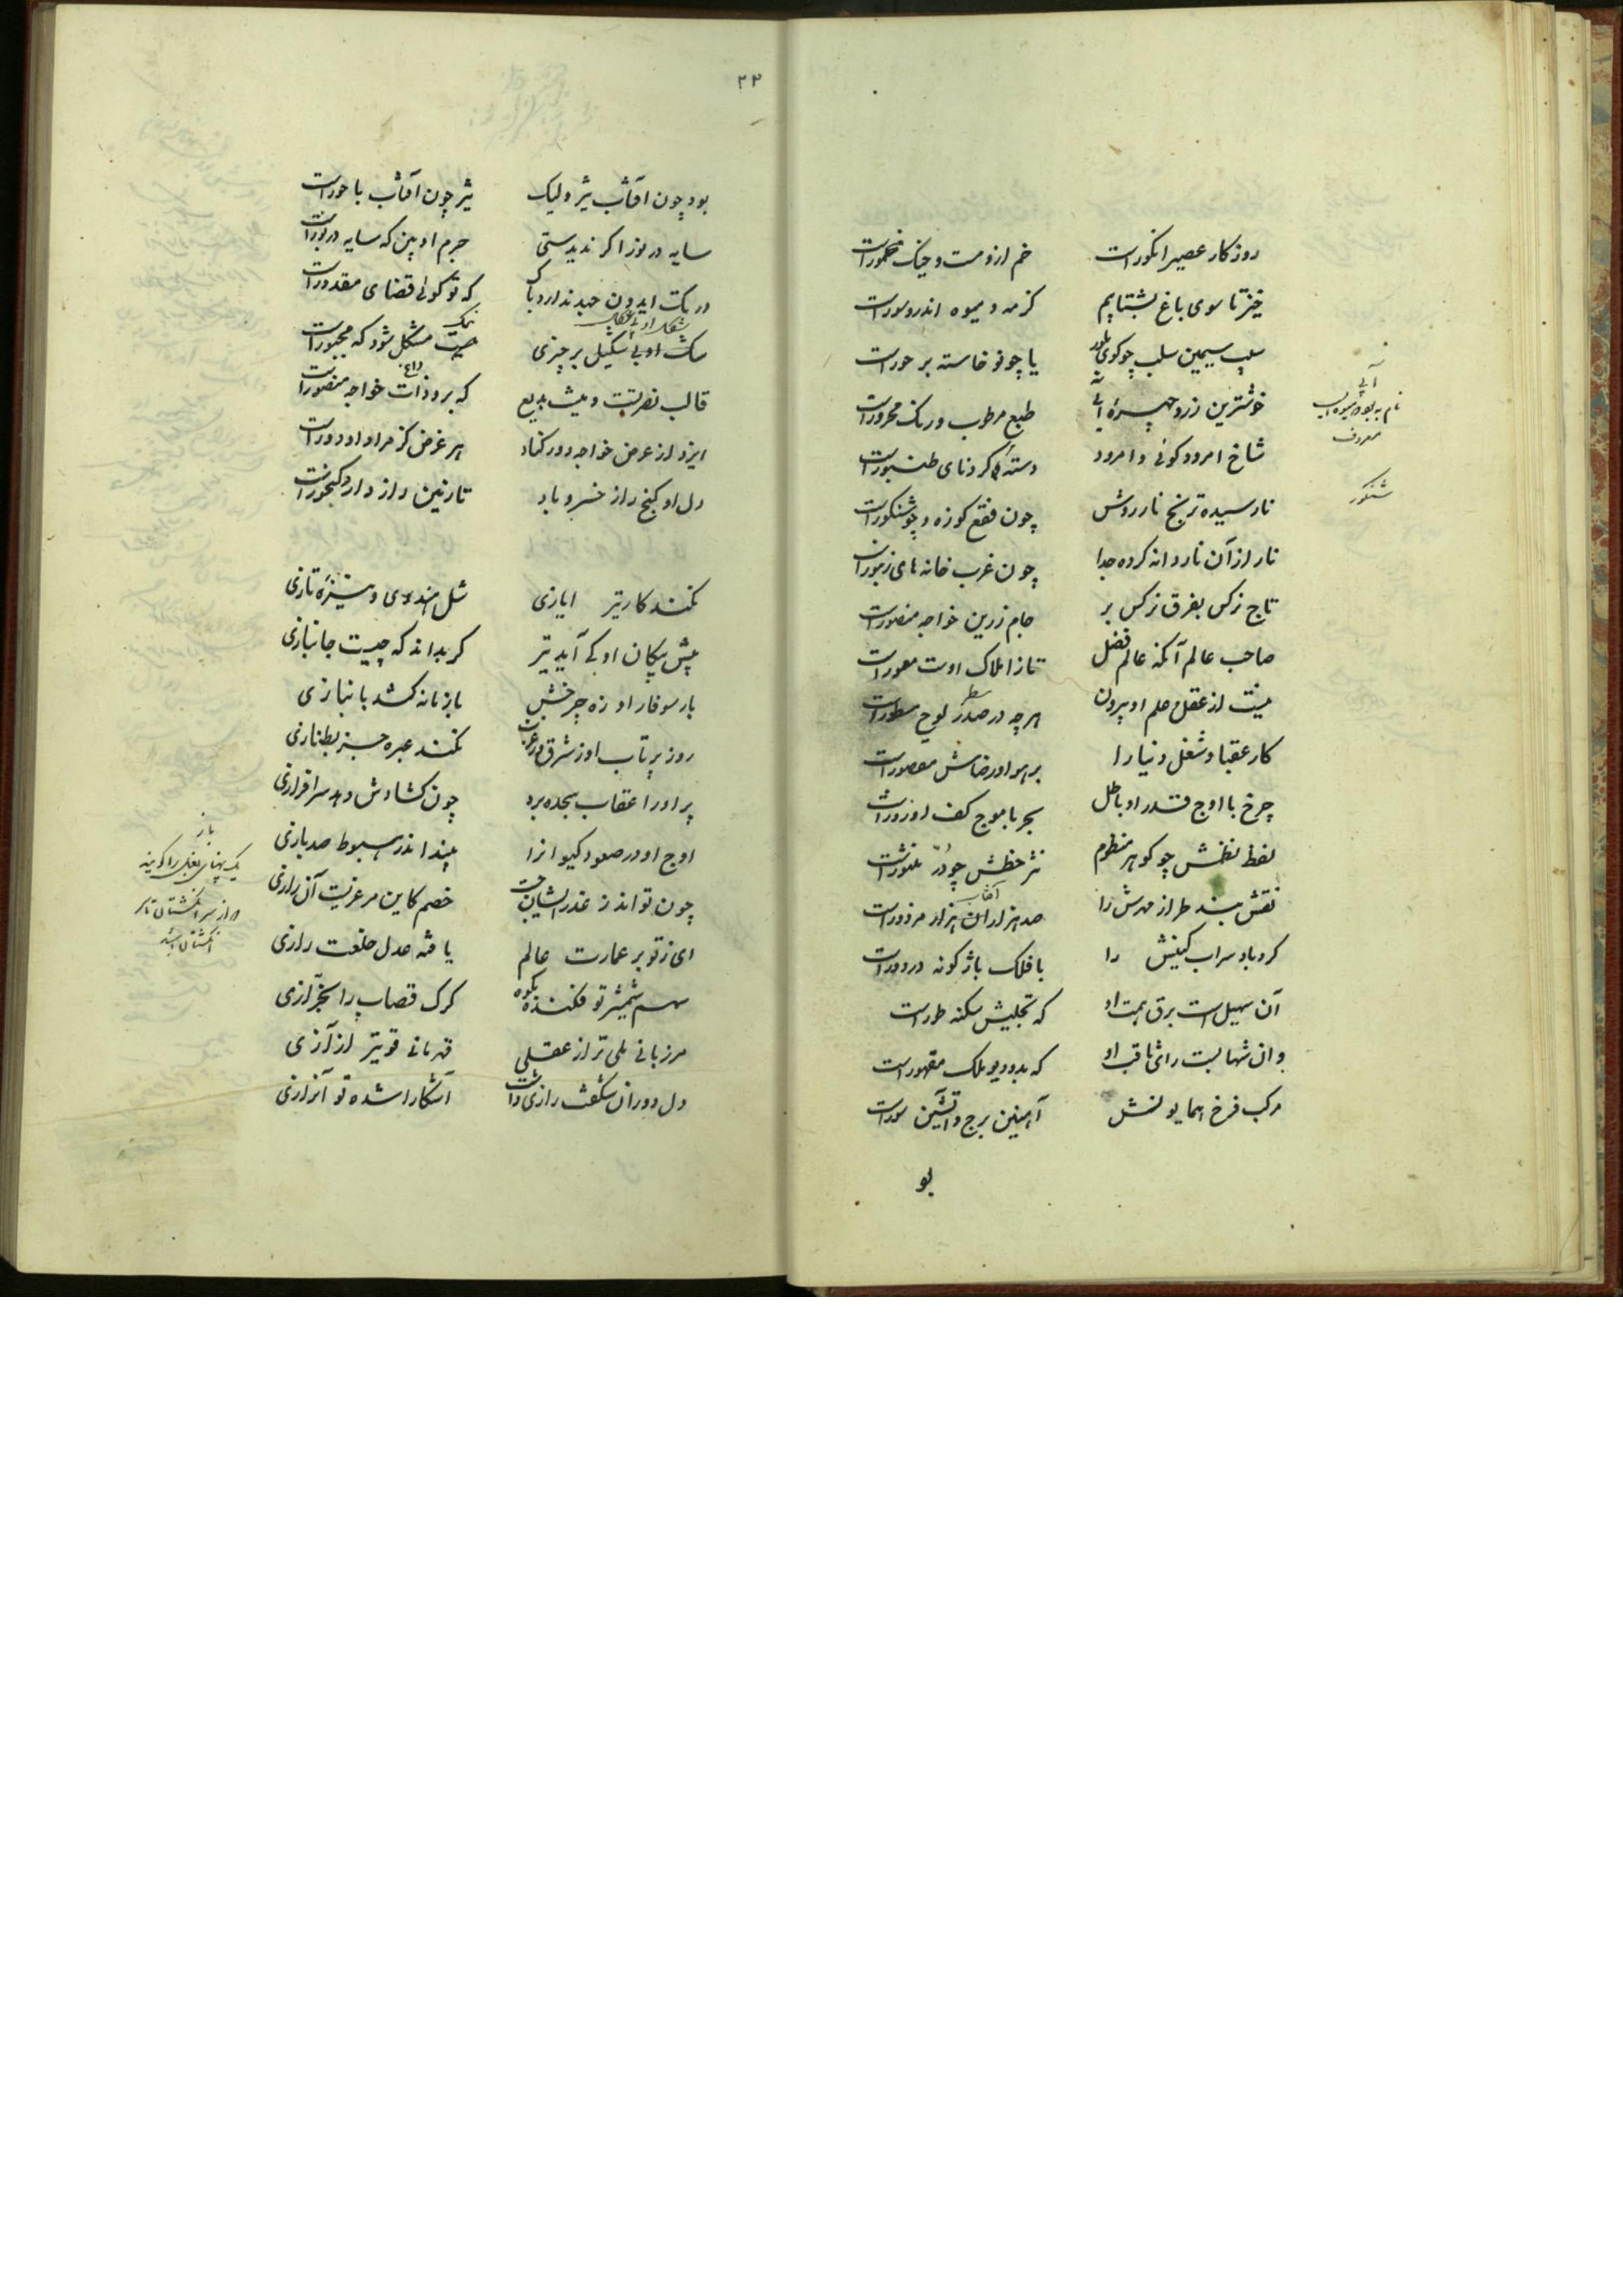 روزکار عصیر انکورات خم ازو مست و چنک مخمورات
خیز تا سوی باغ بشتابیم کز مه و میوه اندرو سورات
سیب سیمین سلب چو کوی بلور یا چو نو خاسته بر حورات
خوشترین زرد چهرهٔ آبی به طبع مرطوب و رنک محرورات
شاخ امرود کوئی و امرود دسته و کردنای طنبورات
نارسیده ترنج نارروش چون فقع کوزه و چو شنکورات
نار از آن ناردانه کرده جدا چون غرب خانه های زنبورات
تاج نرکس بفرق نرکس بر جام زرین خواجه منصورات
صاحب عالم آنکه عالم فضل تا ز املاک اوست معمورات
نیست از عقل و علم او بیرون هرچه در صدر لوح مسطورات
کار عقبا و شغل دنیا را بر هوا و رضاش مقصورات
چرخ با اوج قدر او باطل بحر با موج کف او زورات
لفظ نطقش چو کوهر منظوم نثر خطش چو درّ منثورات
نقش بند طراز مهرش را صد هزاران هزار مزدورات
آفتاب
کرد باد سراب کینش را با فلک باژکونه در دورات
آن سهیل است برق همت او که تجلیش سکنه طورات
وان شهابست رای ثاقب او که بدو دیو ملک مقهورات
مرکب فرخ همایونش آهنین برج و آتشین سورات
بو
آبی
نام به بود و میوه ایست
معروف
شنکور
۲۳
بود چون آفتاب نیز ولیک نیز چون آفتاب با حورات
سایه در نور اکر ندیدستی جرم او بین که سایه در نورات
در تک ایدون جهد ندارد باک که تو کوئی قضای مقدورات
سک او بی شکیل بر چیزی جست مشکل شود که مجبورات
قالب نصرتست و نیست بدیع که برو ذات خواجه منصورات
ایزد از عرض خواجه دور کناد هر غرض کز مراد او دورات
دل او کنج راز خسرو باد تا زمین رازدار و کنجورات
نکند کار تیر ایازی شل هندوی و نیزهٔ تازی
پیش پیکان او کی آید تیر کر بداند که چیست جانبازی
بار سوفار او زه چرخش با زمانه کشد بانبازی
روز پرتاب او ز شرق و غرب نکند عبره جز بطنازی
پر او را عقاب سجده برد چون کشادش دهد سرافرازی
اوج او در صعود کیوانرا بیند اندر هبوط صد بازی
چون تواند ز غدر ایشان جست خصم کاین مرغزیست آن رازی
ای ز تو بر عمارت عالم یافته عدل خلعت رازی
سهم شمشیر تو فکنده بکوه کرک قصاب را بخرّازی
مرزبانی ملی تر از عقلی قهرمانی قویتر از آزی
دل دوران شکفت رازی داشت آشکارا شده تو آنرازی
باز
یک پهنای بغل را کویند
و از سر انکشتان تا سر
انکشتان باشد